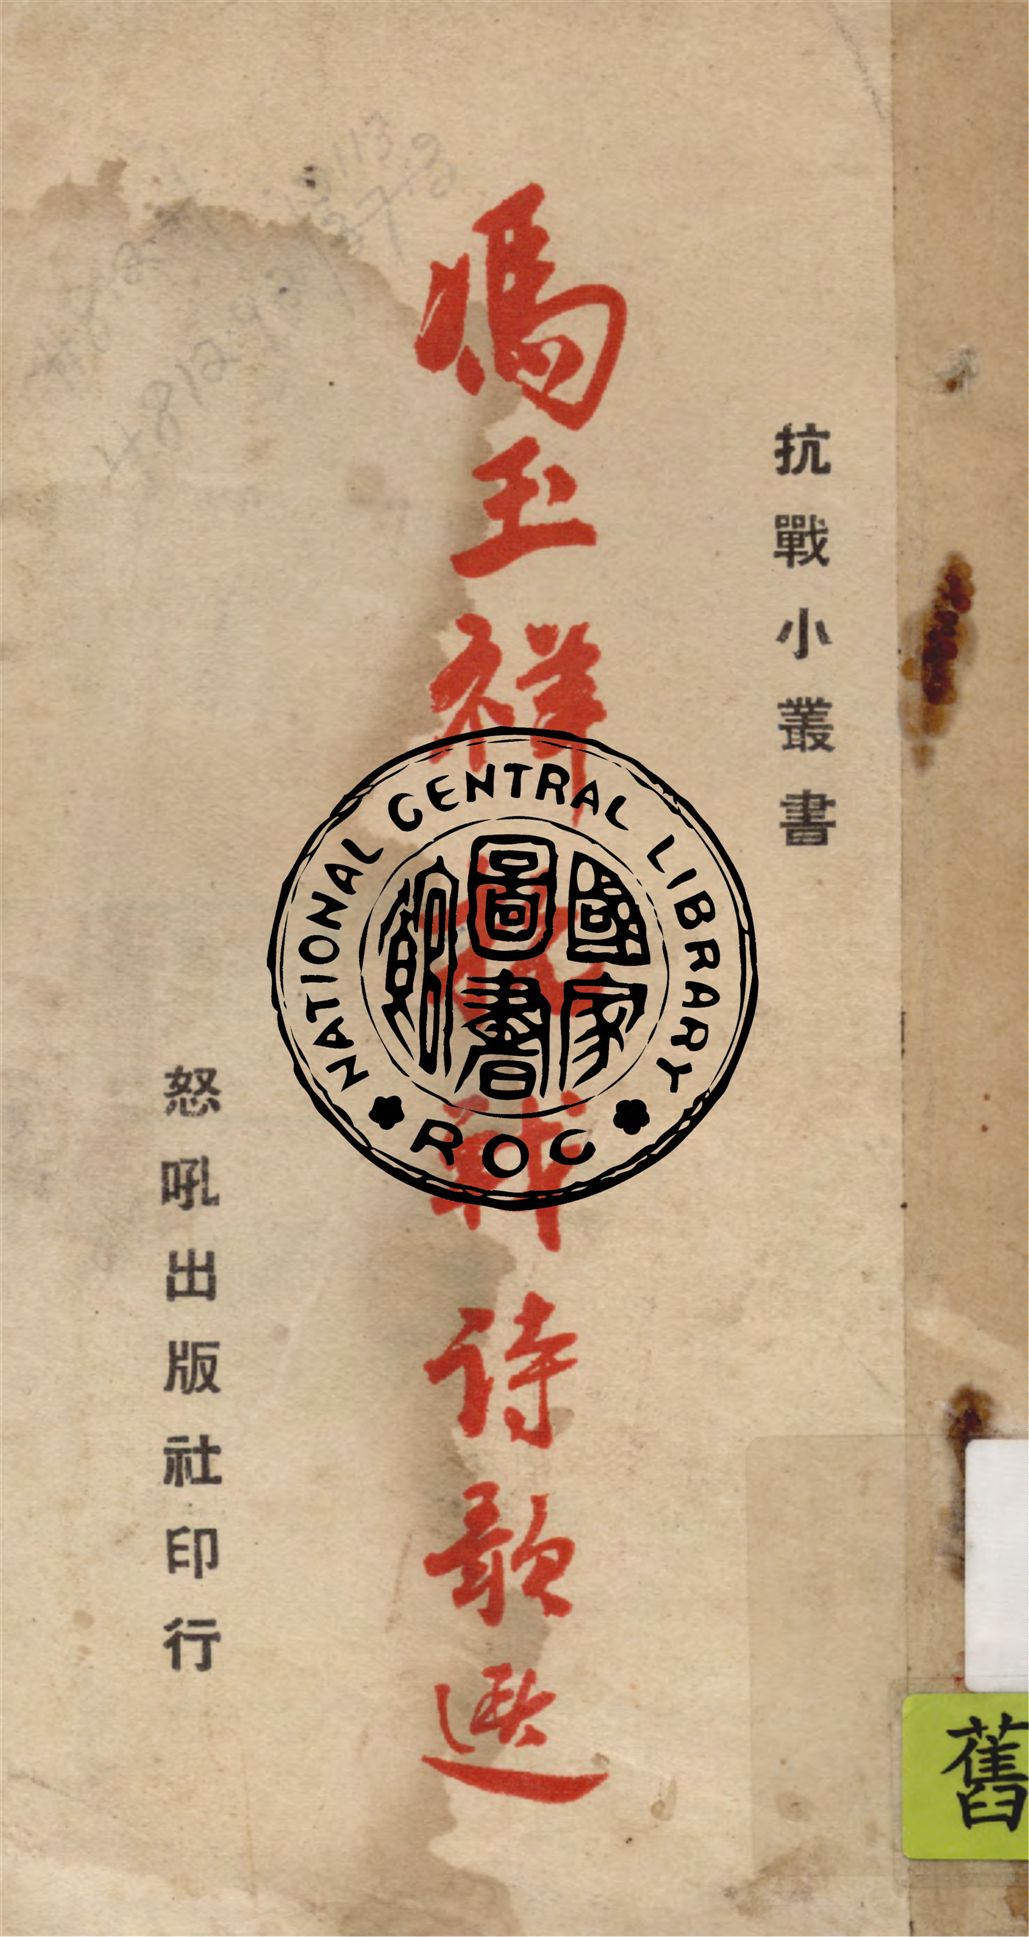 抗戰小叢書
馮玉祥抗戰詩歌選
怒吼出版社印行
NATIONAL CENTRAL LIBRARY
ROC
國家
圖書
館
舊